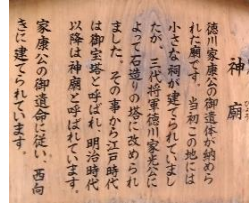 神廟
徳川家康公の御遺体が納めら
れた廟です。当初この地には
小さな祠が建てられていまし
たが、三代将軍徳川家光公に
よって石造りの塔に改められ
ました。その事から江戸時代
は御宝塔と呼ばれ、明治時代
以降は神廟と呼ばれています。
家康公の御遺命に従い、西向
きに建てられています。